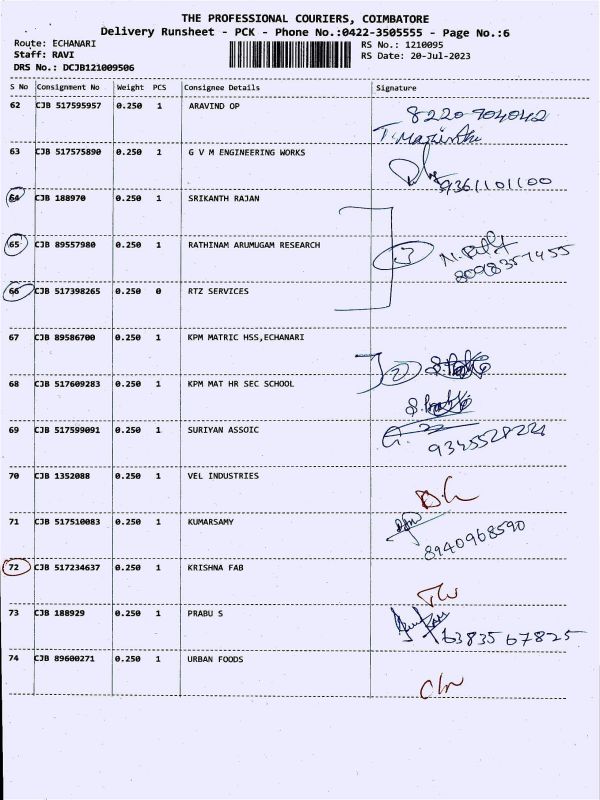 THE PROFESSIONAL COURIERS, COIMBATORE
Delivery Runsheet - PCK - Phone No.:0422-3505555 - Page No.:6
Route: ECHANARI
RS No.: 1210095
Staff: RAVI
RS Date: 20-Jul-2023
DRS No.: DCJB121009506
S No Consignment No Weight PCS Consignee Details Signature
62 CJB 517595957 0.250 1 ARAVIND OP 8220704042
63 CJB 517575890 0.250 1 G V M ENGINEERING WORKS 9361101100
64 CJB 188970 0.250 1 SRIKANTH RAJAN
65 CJB 89557980 0.250 1 RATHINAM ARUMUGAM RESEARCH 3 8098357455
66 CJB 517398265 0.250 0 RTZ SERVICES
67 CJB 89586700 0.250 1 KPM MATRIC HSS,ECHANARI 2
68 CJB 517609283 0.250 1 KPM MAT HR SEC SCHOOL
69 CJB 517599091 0.250 1 SURIYAN ASSOIC
70 CJB 1352088 0.250 1 VEL INDUSTRIES
71 CJB 517510083 0.250 1 KUMARSAMY 8940968590
72 CJB 517234637 0.250 1 KRISHNA FAB
73 CJB 188929 0.250 1 PRABU S 6383567825
74 CJB 89600271 0.250 1 URBAN FOODS